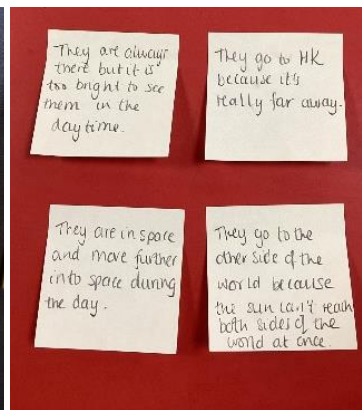 They are always
there but it is
too bright to see
them in the
daytime.
They go to HK
because it's
really far away.
They are in space
and move further
into space during
the day.
They go to the
other side of the
world because
the sun can't reach
both sides of the
world at once.